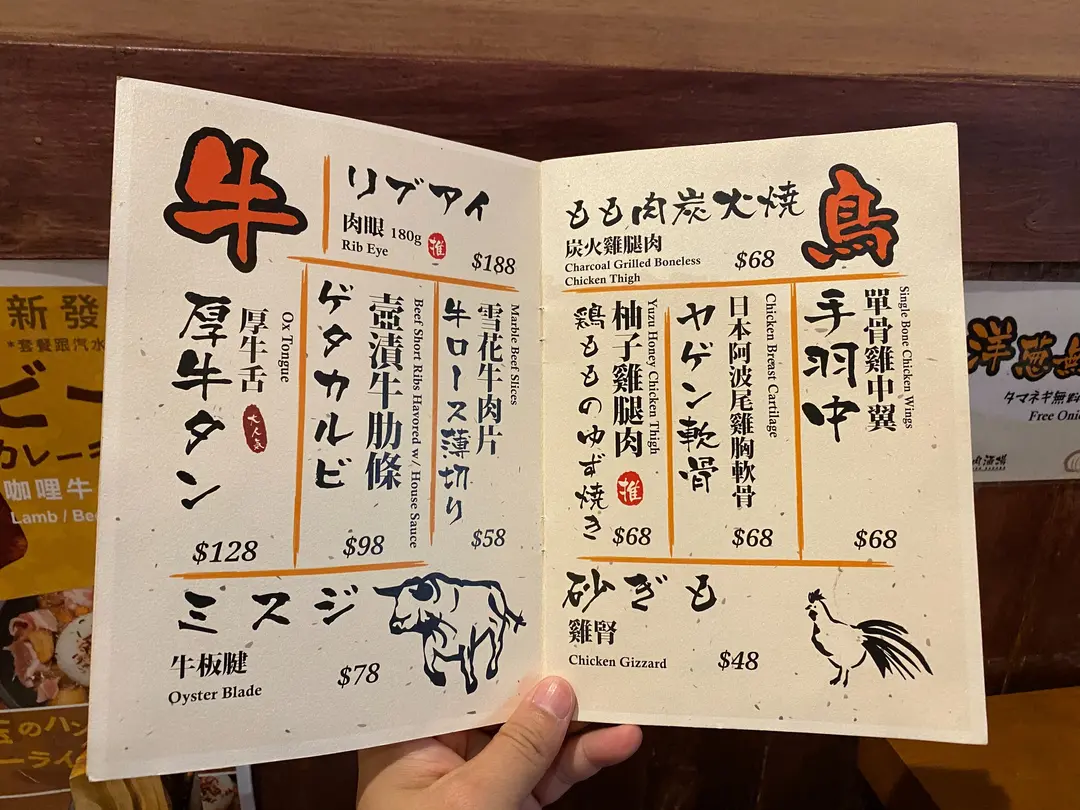 牛
リブアイ
肉眼 180g
Rib Eye
推
$188
厚牛タン
厚牛舌
Ox Tongue
大人氣
$128
ゲタカルビ
壺漬牛肋條
Beef Short Ribs Havored w/ House Sauce
$98
牛ロース薄切り
雪花牛肉片
Marble Beef Slices
$58
ミスジ
牛板腱
Oyster Blade
$78
もも肉炭火焼
炭火雞腿肉
Charcoal Grilled Boneless
Chicken Thigh
$68
鳥
鶏もものゆず焼き
柚子雞腿肉
Yuzu Honey Chicken Thigh
推
$68
ヤゲン軟骨
日本阿波尾雞胸軟骨
Chicken Breast Cartilage
$68
手羽中
單骨雞中翼
Single Bone Chicken Wings
$68
砂ぎも
雞腎
Chicken Gizzard
$48
新發
*套餐跟汽水
ビー
カレー
咖哩牛
Lamb / Be
玉のハン
ーライ
洋葱無
タマネギ無料
Free Oni